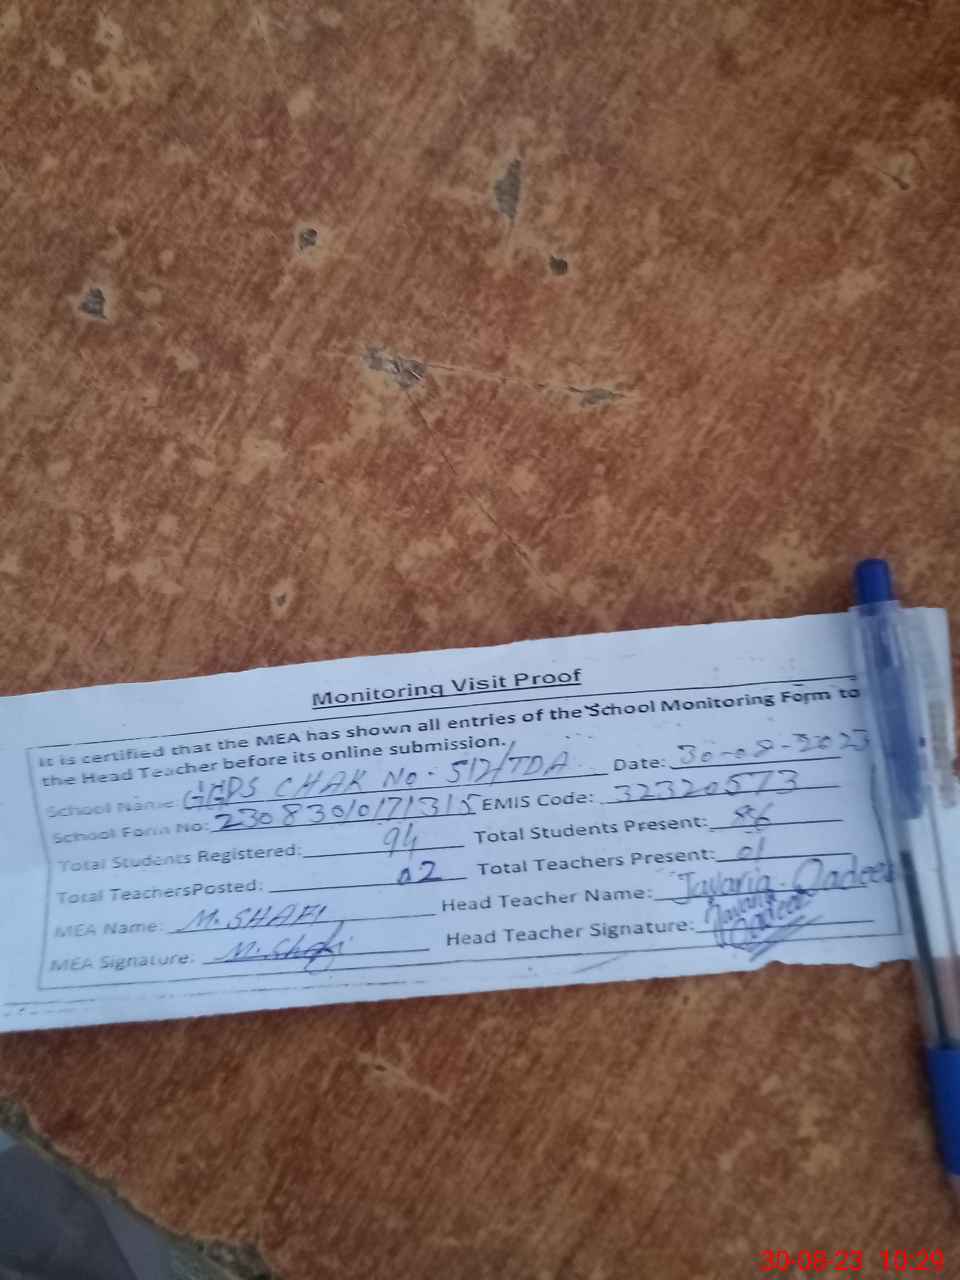 Monitoring Visit Proof
It is certified that the MEA has shown all entries of the School Monitoring Form to
the Head Teacher before its online submission.
School Name: GGPS CHAK No. 512/TDA Date: 30-08-2023
School Form No: 23083010171315 EMIS Code: 32320573
Total Students Registered: 94 Total Students Present: 86
Total TeachersPosted: 02 Total Teachers Present: 01
MEA Name: M. SHAFI Head Teacher Name: Javaria Qadeer
MEA Signature: M. Shafi Head Teacher Signature: Javaria Qadeer
30-08-23 10:29